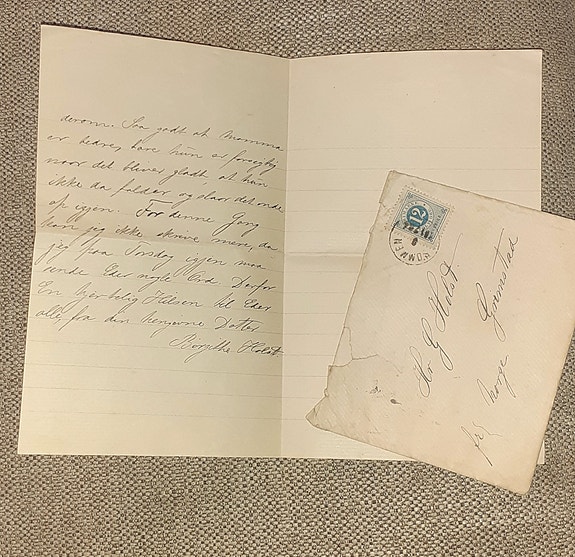 derom. Saa godt at Mamma
er bedre, bare hun er forsigtig
naar det bliver gladt, at hun
ikke da falder og slaar det onde
op igjen. For denne Gang
kan jeg ikke skrive mere, da
jeg paa Torsdag igjen maa
sende Eder nogle Ord. Derfor
En hjertelig Hilsen til Eder
alle, fra din hengivne Datter
Borgilha Holst
12
Hr G Holst
Grimstad
Norge